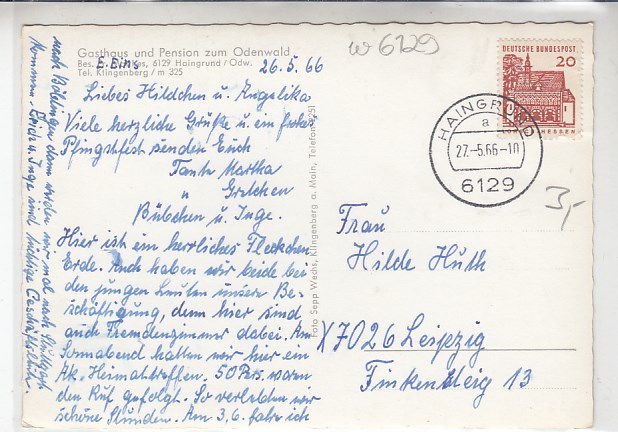 Gasthaus und Pension zum Odenwald
Bes. E. Bins, 6129 Haingrund / Odw.
Tel. Klingenberg / m 325
26.5.66
Liebes Hildchen u. Angelika
Viele herzliche Grüße u. ein frohes
Pfingstfest senden Euch
Tante Martha
u Gretchen
Bübchen u. Inge.
Hier ist ein herrliches Fleckchen
Erde. Auch haben wir beide bei
den jungen Leuten unsere Be-
schäftigung, denn hier sind
auch Fremdenzimmer dabei. Am
Sonnabend hatten wir hier ein
Ak. Heimattreffen. 50 Pers. waren
den Ruf gefolgt. So verlebten wir
schöne Stunden. Am 3.6. fahre ich
nach Böblingen dann wollen wir mal nach Stuttgart
kommen. u. Inge sind tüchtige Geschäftsleute.
Foto Sepp Wechs, Klingenberg a. Main, Telefon 251
w 6129
DEUTSCHE BUNDESPOST
20
HESSEN
HAINGRUND
a
27.-5.66-10
6129
3,-
Frau
Hilde Huth
X7026 Leipzig
Finkensteig 13